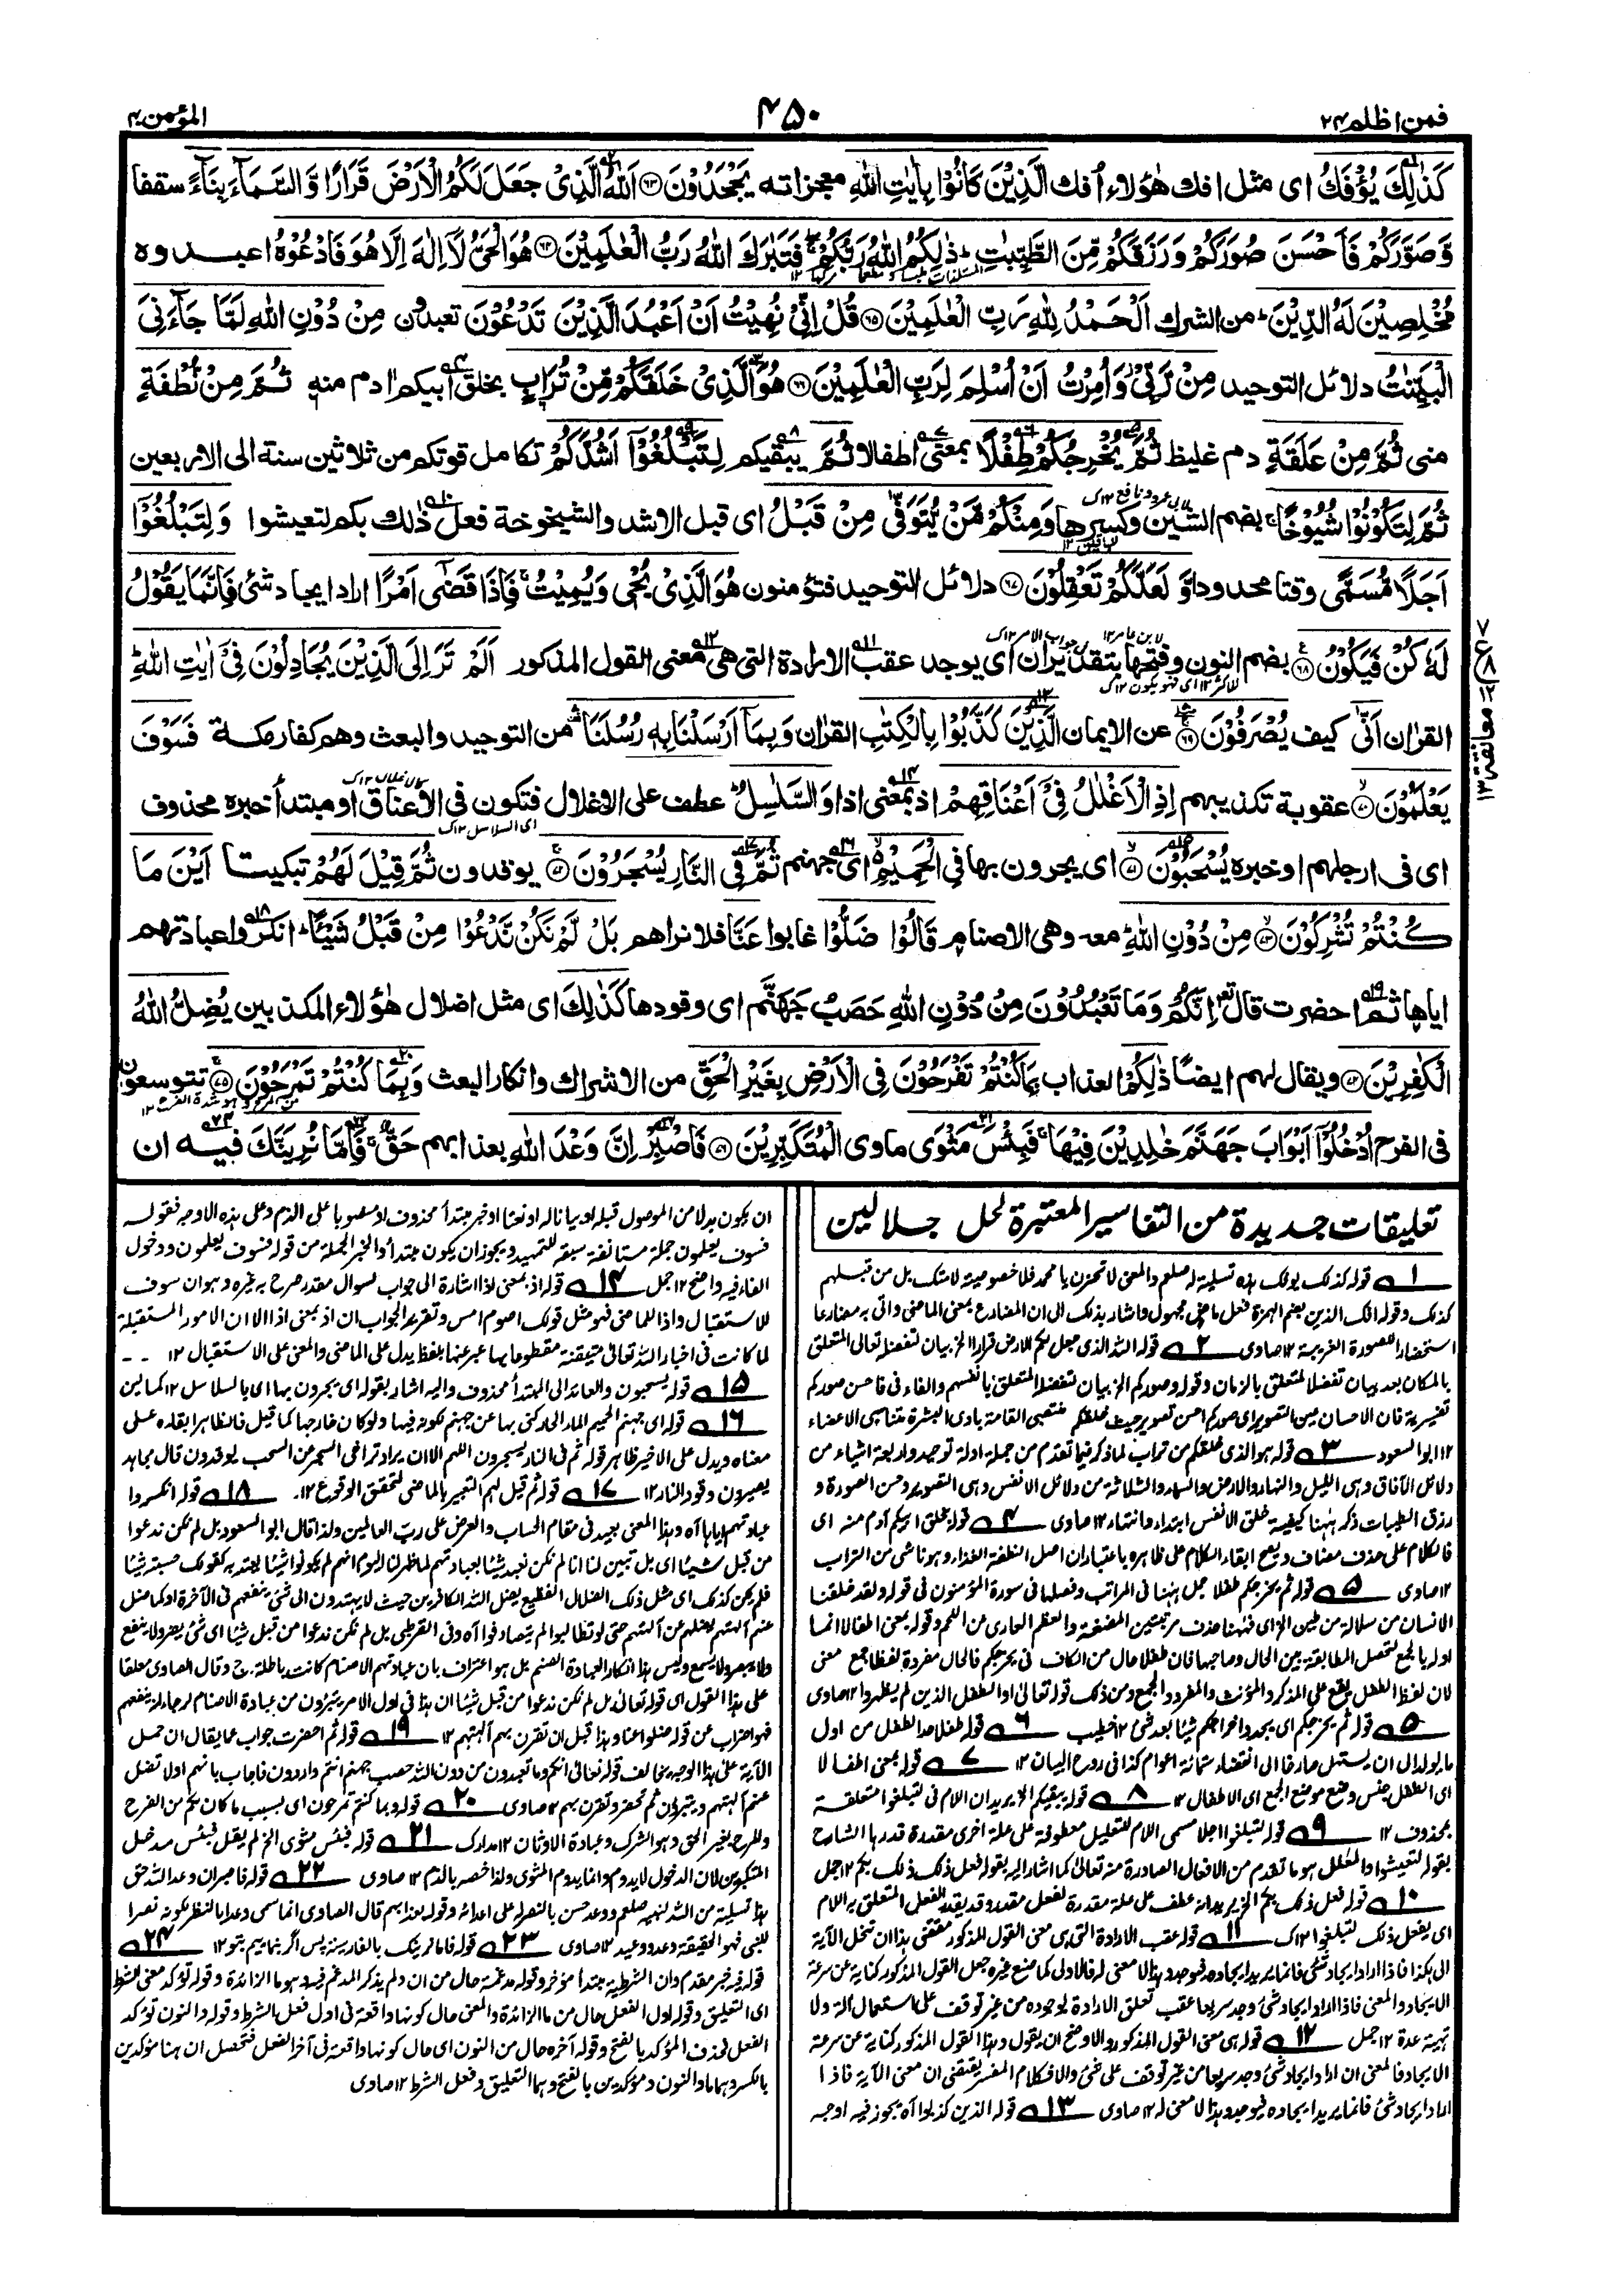 فمن اظلم ۲۴
۴۵۰
المؤمن ۴۰
كَذٰلِكَ يُؤْفَكُ اى مثل افك هٰؤلاء اُفك الَّذِيْنَ كَانُوْا بِاٰيٰتِ اللّٰهِ معجزاته يَجْحَدُوْنَ ۝۶۳ اَللّٰهُ الَّذِىْ جَعَلَ لَكُمُ الْاَرْضَ قَرَارًا وَّ السَّمَآءَ بِنَآءً سقفا
وَّ صَوَّرَكُمْ فَاَحْسَنَ صُوَرَكُمْ وَ رَزَقَكُمْ مِّنَ الطَّيِّبٰتِ ؕ ذٰلِكُمُ اللّٰهُ رَبُّكُمْ ۚ فَتَبٰرَكَ اللّٰهُ رَبُّ الْعٰلَمِيْنَ ۝۶۴ هُوَ الْحَىُّ لَاۤ اِلٰهَ اِلَّا هُوَ فَادْعُوْهُ اعبدوه
مُخْلِصِيْنَ لَهُ الدِّيْنَ ؕ من الشرك اَلْحَمْدُ لِلّٰهِ رَبِّ الْعٰلَمِيْنَ ۝۶۵ قُلْ اِنِّىْ نُهِيْتُ اَنْ اَعْبُدَ الَّذِيْنَ تَدْعُوْنَ تعبدون مِنْ دُوْنِ اللّٰهِ لَمَّا جَآءَنِىَ
الْبَيِّنٰتُ دلائل التوحيد مِنْ رَّبِّىْ وَ اُمِرْتُ اَنْ اُسْلِمَ لِرَبِّ الْعٰلَمِيْنَ ۝۶۶ هُوَ الَّذِىْ خَلَقَكُمْ مِّنْ تُرَابٍ بخلق ابيكم ادم منه ثُمَّ مِنْ نُّطْفَةٍ
منى ثُمَّ مِنْ عَلَقَةٍ دم غليظ ثُمَّ يُخْرِجُكُمْ طِفْلًا بمعنى اطفالا ثُمَّ يبقيكم لِتَبْلُغُوْۤا اَشُدَّكُمْ تكامل قوتكم من ثلاثين سنة الى الاربعين
ثُمَّ لِتَكُوْنُوْا شُيُوْخًا ۚ بضم الشين وكسرها وَمِنْكُمْ مَّنْ يُّتَوَفّٰى مِنْ قَبْلُ اى قبل الاشد والشيخوخة فعل ذلك بكم لتعيشوا وَ لِتَبْلُغُوْۤا
اَجَلًا مُّسَمًّى وقتا محدودا وَّ لَعَلَّكُمْ تَعْقِلُوْنَ ۝۶۷ دلائل التوحيد فتؤمنون هُوَ الَّذِىْ يُحْىٖ وَ يُمِيْتُ ۚ فَاِذَا قَضٰۤى اَمْرًا اراد ايجاد شئ فَاِنَّمَا يَقُوْلُ
لَهٗ كُنْ فَيَكُوْنُ ۝۶۸ بضم النون وفتحها بتقدير ان اى يوجد عقب الارادة التى هى معنى القول المذكور اَلَمْ تَرَ اِلَى الَّذِيْنَ يُجَادِلُوْنَ فِىْۤ اٰيٰتِ اللّٰهِ ؕ
القران اَنّٰى كيف يُصْرَفُوْنَ ۝۶۹ عن الايمان الَّذِيْنَ كَذَّبُوْا بِالْكِتٰبِ القران وَ بِمَاۤ اَرْسَلْنَا بِهٖ رُسُلَنَا من التوحيد والبعث وهم كفار مكة فَسَوْفَ
يَعْلَمُوْنَ ۝۷۰ عقوبة تكذيبهم اِذِ الْاَغْلٰلُ فِىْۤ اَعْنَاقِهِمْ اذ بمعنى اذا وَ السَّلٰسِلُ ؕ عطف على الاغلال فتكون فى الاعناق او مبتدأ خبره محذوف
اى فى ارجلهم او خبره يُسْحَبُوْنَ ۝۷۱ اى يجرون بها فِى الْحَمِيْمِ ۙ اى جهنم ثُمَّ فِى النَّارِ يُسْجَرُوْنَ ۝۷۲ يوقدون ثُمَّ قِيْلَ لَهُمْ تبكيتا اَيْنَ مَا
كُنْتُمْ تُشْرِكُوْنَ ۝۷۳ مِنْ دُوْنِ اللّٰهِ ؕ معه وهى الاصنام قَالُوْا ضَلُّوْا غابوا عَنَّا فلا نراهم بَلْ لَّمْ نَكُنْ نَّدْعُوْا مِنْ قَبْلُ شَيْـًٔا ؕ انكروا عبادتهم
اياها ثم احضرت قال تع اِنَّكُمْ وَمَا تَعْبُدُوْنَ مِنْ دُوْنِ اللّٰهِ حَصَبُ جَهَنَّمَ اى وقودها كَذٰلِكَ اى مثل اضلال هؤلاء المكذبين يُضِلُّ اللّٰهُ
الْكٰفِرِيْنَ ۝۷۴ ويقال لهم ايضا ذٰلِكُمْ العذاب بِمَا كُنْتُمْ تَفْرَحُوْنَ فِى الْاَرْضِ بِغَيْرِ الْحَقِّ من الاشراك وانكار البعث وَ بِمَا كُنْتُمْ تَمْرَحُوْنَ ۝۷۵ تتوسعون
فى الفرح اُدْخُلُوْۤا اَبْوَابَ جَهَنَّمَ خٰلِدِيْنَ فِيْهَا ۚ فَبِئْسَ مَثْوَى ماوى الْمُتَكَبِّرِيْنَ ۝۷۶ فَاصْبِرْ اِنَّ وَعْدَ اللّٰهِ بعذابهم حَقٌّ ۚ فَاِمَّا نُرِيَنَّكَ فيه ان
معانقة ۱۳
تعليقات جديدة من التفاسير المعتبرة لحل جلالين
۱ قوله كذلك يؤفك هذه تسلية له صلعم والمعنى لا تحزن يا محمد فلا خصوصية لامتك بل من قبلهم
كذلك وقوله افك الذين بضم الهمزة فعل ماض مجهول واشار بذلك الى ان المضارع بمعنى الماضى واتى به مضارعا
استحضارا للصورة الغريبة ۱۲ صاوى ۲ قوله الله الذى جعل لكم الارض قرارا الخ بيان لتفضله تعالى المتعلق
بالمكان بعد بيان تفضله المتعلق بالزمان وقوله وصوركم الخ بيان لتفضله المتعلق بانفسهم والفاء فى فاحسن صوركم
تفسيرية فان الاحسان عين التصوير اى صوركم احسن تصوير حيث خلقكم منتصبى القامة بادى البشرة متناسبى الاعضاء
۱۲ ابو السعود ۳ قوله هو الذى خلقكم من تراب لما ذكر فيما تقدم من جملة ادلة توحيده اربعة اشياء من
دلائل الآفاق وهى الليل والنهار والارض والسماء والثلاثة من دلائل الانفس وهى التصوير وحسن الصورة و
رزق الطيبات ذكر ههنا كيفية خلق الانفس ابتداء وانتهاء ۱۲ صاوى ۴ قوله بخلق ابيكم آدم منه اى
فالكلام على حذف مضاف ويصح ابقاء الكلام على ظاهره باعتبار ان اصل النطفة الغذاء وهو ناشى من التراب
۱۲ صاوى ۵ قوله ثم يخرجكم طفلا اجمل ههنا فى المراتب وفصلها فى سورة المؤمنون فى قوله ولقد خلقنا
الانسان من سلالة من طين الخ اى فههنا حذف مرتبتين المضغة والعظم العارى عن اللحم وقوله بمعنى اطفالا انما
اوله بالجمع لتحصل المطابقة بين الحال وصاحبها فان طفلا حال من الكاف فى يخرجكم فالحال مفردة لفظا جمع معنى
لان لفظ الطفل يقع على المذكر والمؤنث والمفرد والجمع ومن ذلك قوله تعالى او الطفل الذين لم يظهروا ۱۲ صاوى
۵ قوله ثم يخرجكم اى يجدد اخراجكم شيئا بعد شئ ۱۲ خطيب ۶ قوله طفلا هو الطفل من اول
ما يولد الى ان يستهل صارفا الى انقضاء ستة اعوام كذا فى روح البيان ۱۲ ۷ قوله بمعنى اطفالا
اى الطفل جنس وضع موضع الجمع اى الاطفال ۱۲ ۸ قوله يبقيكم الخ يريد ان اللام فى لتبلغوا متعلقة
بمحذوف ۱۲ ۹ قوله لتبلغوا اجلا مسمى اللام للتعليل معطوفة على علة اخرى مقدرة قدرها الشارح
بقوله لتعيشوا والمعلل هو ما تقدم من الافعال الصادرة منه تعالى كما اشار اليه بقوله فعل ذلك بكم ۱۲ جمل
۱۰ قوله فعل ذلك بكم الخ يريد انه عطف على علة مقدرة لفعل مقدر وقد يقدر الفعل المتعلق به اللام
اى يفعل ذلك لتبلغوا ۱۲ ك ۱۱ قوله عقب الارادة التى هى معنى القول المذكور مقتضى هذا ان تنحل الآية
الى هكذا فاذا اراد ايجاد شئ فانما يريد ايجاده فيوجد وهذا لا معنى له فالاولى كما صنع غيره جعل القول المذكور كناية عن سرعة
الايجاد والمعنى فاذا اراد ايجاد شئ وجد سريعا عقب تعلق الارادة لوجوده من غير توقف على استعمال آلة ولا
تهيئة عدة ۱۲ جمل ۱۲ قوله هى معنى القول المذكور والاوضح ان يقول وهذا القول المذكور كناية عن سرعة
الايجاد فالمعنى ان اراد ايجاد شئ وجد سريعا من غير توقف على شئ والا فكلام المفسر يقتضى ان معنى الآية فاذا
اراد ايجاد شئ فانما يريد ايجاده فيوجد وهذا لا معنى له ۱۲ صاوى ۱۳ قوله الذين كذبوا آه يجوز فيه اوجه
ان يكون بدلا من الموصول قبله او بيانا له او نعتا او خبر مبتدأ محذوف او منصوبا على الذم وعلى هذه الاوجه فقوله
فسوف يعلمون جملة مستانفة سيقت للتهديد ويجوز ان يكون مبتدأ والخبر الجملة من قوله فسوف يعلمون ودخول
الفاء فيه واضح ۱۲ جمل ۱۴ قوله اذ بمعنى اذا اشارة الى جواب سوال مقدر صرح به غيره وهو ان سوف
للاستقبال واذ للماضى فهو مثل قولك اصوم امس وتقرير الجواب ان اذ بمعنى اذا الا ان الامور المستقبلة
لما كانت فى اخبار الله تعالى متيقنة مقطوعا بها عبر عنها بلفظ يدل على الماضى والمعنى على الاستقبال ۱۲
۱۵ قوله يسحبون والعائد الى المبتدأ محذوف واليه اشار بقوله اى يجرون بها اى بالسلاسل ۱۲ كمالين
۱۶ قوله اى جهنم الحميم الماء الحار وكنى بها عن جهنم لكونه فيها ولو كان خارجها كما قيل فالظاهر ابقاءه على
معناه ويدل على الاخير ظاهر قوله ثم فى النار يسجرون اللهم الا ان يراد تراخى السجر عن السحب يوقدون قال مجاهد
يصيرون وقود النار ۱۲ ۱۷ قوله ثم قيل لهم التعبير بالماضى لتحقق الوقوع ۱۲ ۱۸ قوله انكروا
عبادتهم اياها آه وهذا المعنى بعيد فى مقام الحساب والعرض على رب العالمين ولذا قال ابو السعود بل لم نكن ندعوا
من قبل شيئا اى بل تبين لنا انا لم نكن نعبد شيئا بعبادتهم لما ظهر لنا اليوم انهم لم يكونوا شيئا يعتد به كقولك حسبته شيئا
فلم يكن كذلك اى مثل ذلك الضلال الفظيع يضل الله الكافرين حيث لا يهتدون الى شئ ينفعهم فى الآخرة او كما ضل
عنهم آلهتهم يضلهم عن آلهتهم حتى لو تطالبوا لم يتصادفوا آه وفى القرطبى بل لم نكن ندعوا من قبل شيئا اى شئ يضر ولا ينفع
ولا يبصر ولا يسمع وليس هذا انكار العبادة الصنم بل هو اعتراف بان عبادتهم الاصنام كانت باطلة ج وقال الصاوى معلقا
على هذا القول اى قوله تعالى بل لم نكن ندعوا من قبل شيئا ان هذا فى اول الامر يتبرؤن من عبادة الاصنام لرجاء انه ينفعهم
فهو اضراب عن قوله ضلوا عنا وهذا قبل ان تقرن بهم آلهتهم ۱۲ ۱۹ قوله ثم احضرت جواب عما يقال ان حمل
الآية على هذا الوجه يخالف قوله تعالى انكم وما تعبدون من دون الله حصب جهنم انتم لها واردون فاجاب بانهم اولا تضل
عنهم آلهتهم ويتبرؤن ثم تحضر وتقرن بهم ۱۲ صاوى ۲۰ قوله وبما كنتم تمرحون اى بسبب ما كان لكم من الفرح
والمرح بغير الحق وهو الشرك وعبادة الاوثان ۱۲ مدارك ۲۱ قوله فبئس مثوى الخ لم يقل فبئس مدخل
المتكبرين لان الدخول لا يدوم وانما يدوم المثوى ولذا خصه بالذم ۱۲ صاوى ۲۲ قوله فاصبر ان وعد الله حق
هذا تسلية من الله لنبيه صلعم ووعد حسن بالنصر له على اعدائه وقوله بعذابهم قال الصاوى انما سمى وعدا بالنظر لكونه نصرا
للنبى فهو الحقيقة وعد ووعيد ۱۲ صاوى ۲۳ قوله فاما نرينك بالفارسية پس اگر بنماييم بتو ۱۲ ۲۴
قوله فيه خبر مقدم وان الشرطية مبتدأ مؤخر وقوله مدغمة حال من ان ولم يذكر المدغم فيه وهو ما الزائدة وقوله تؤكد معنى الشرط
اى التعليق وقوله اول الفعل حال من ما الزائدة والمعنى حال كونها واقعة فى اول فعل بالشرط وقوله والنون تؤكد
الفعل فحذف المؤكد بالفتح وقوله آخره حال من النون اى حال كونها واقعة فى آخر الفعل فتحصل ان هنا مؤكدين
بالكسر وهما ما والنون ومؤكدين بالفتح وهما التعليق وفعل الشرط ۱۲ صاوى